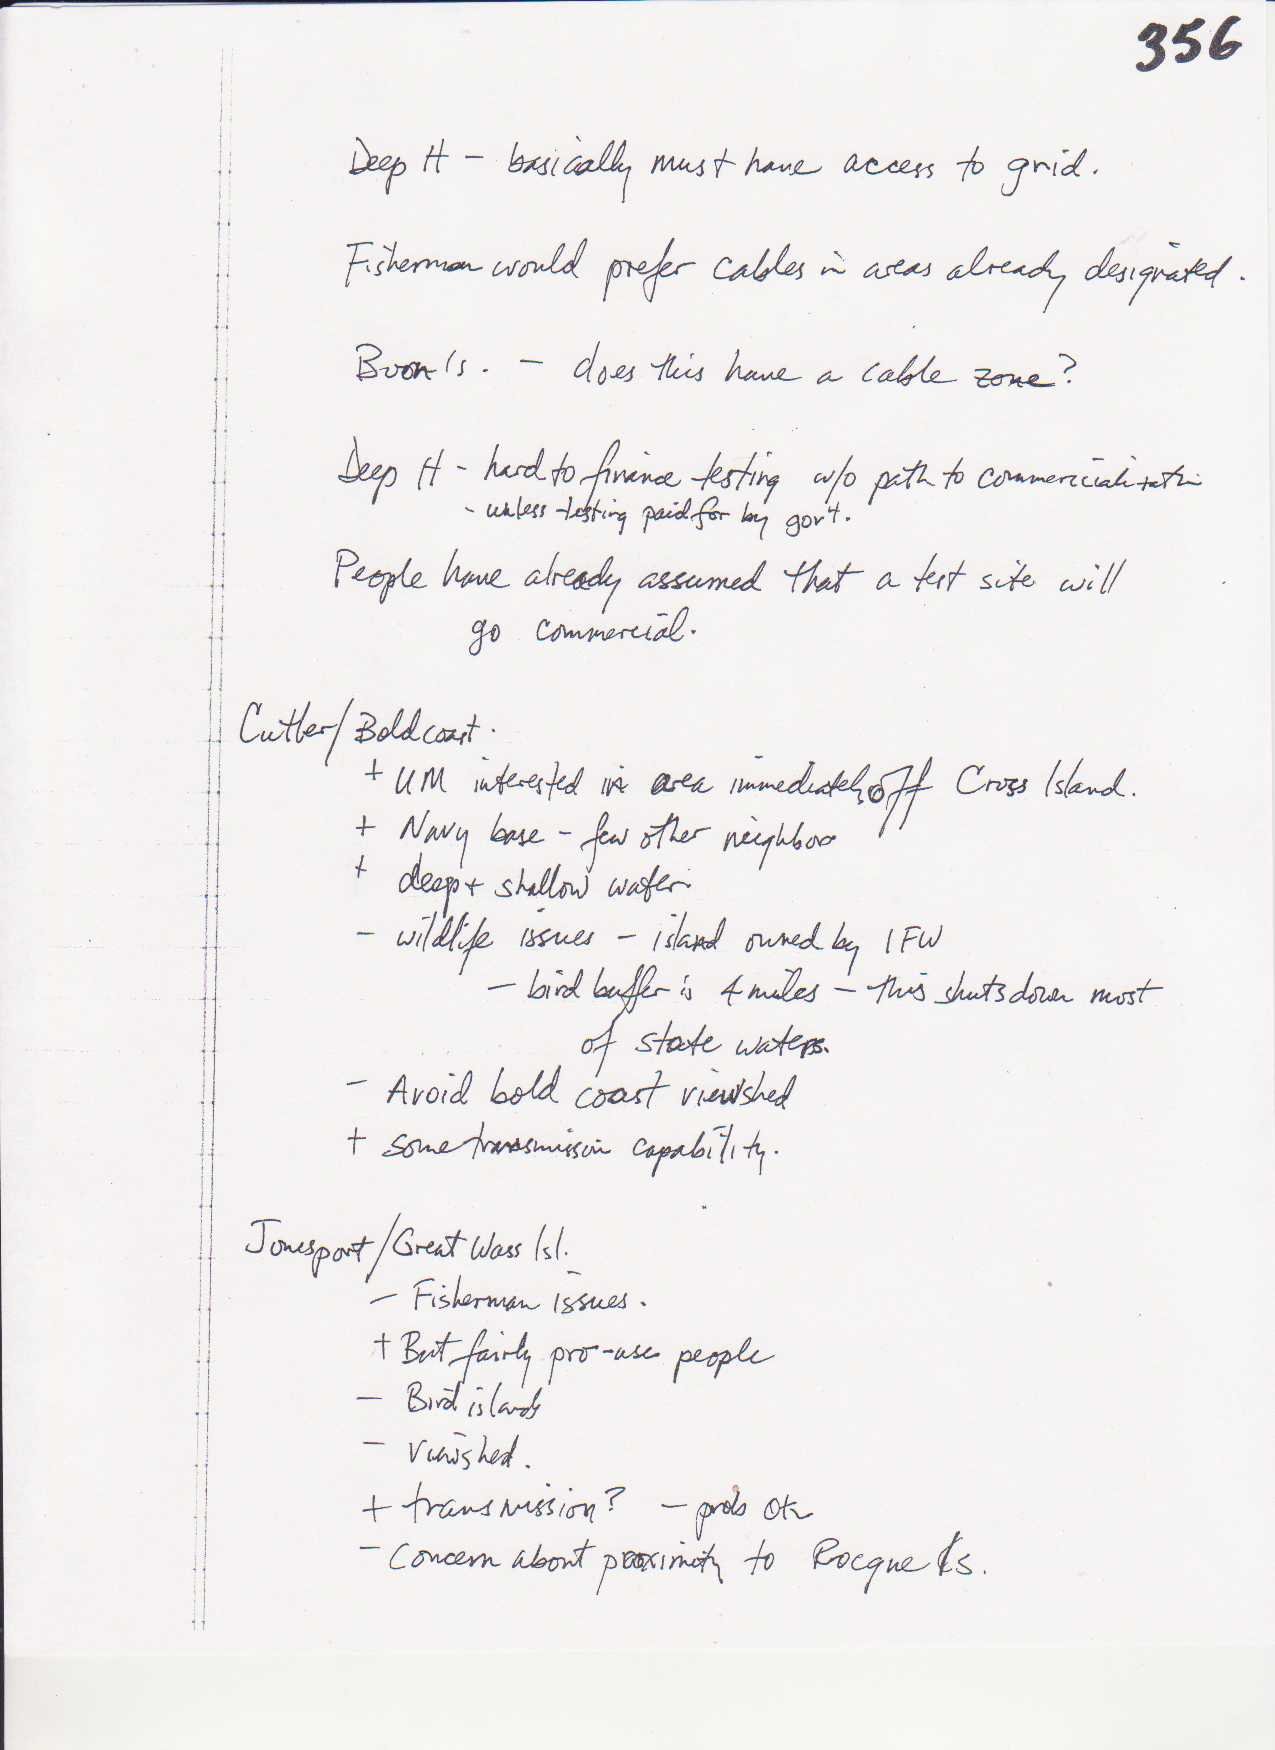 356
Deep H - basically must have access to grid.
Fisherman would prefer cables in areas already designated.
Boon Is. - does this have a cable zone?
Deep H - hard to finance testing w/o path to commercialization
- unless testing paid for by gov't.
People have already assumed that a test site will
go commercial.
Cutler/Bold coast.
+ UM interested in area immediately off Cross Island.
+ Navy base - few other neighbors
+ deep + shallow water.
- wildlife issues - island owned by IFW
- bird buffer is 4 miles - this shuts down most
of state waters.
- Avoid bold coast viewshed
+ some transmission capability.
Jonesport/Great Wass Isl.
- Fisherman issues.
+ But fairly pro-use people
- Bird islands
- viewshed.
+ transmission? - prob ok
- Concern about proximity to Rocque Is.